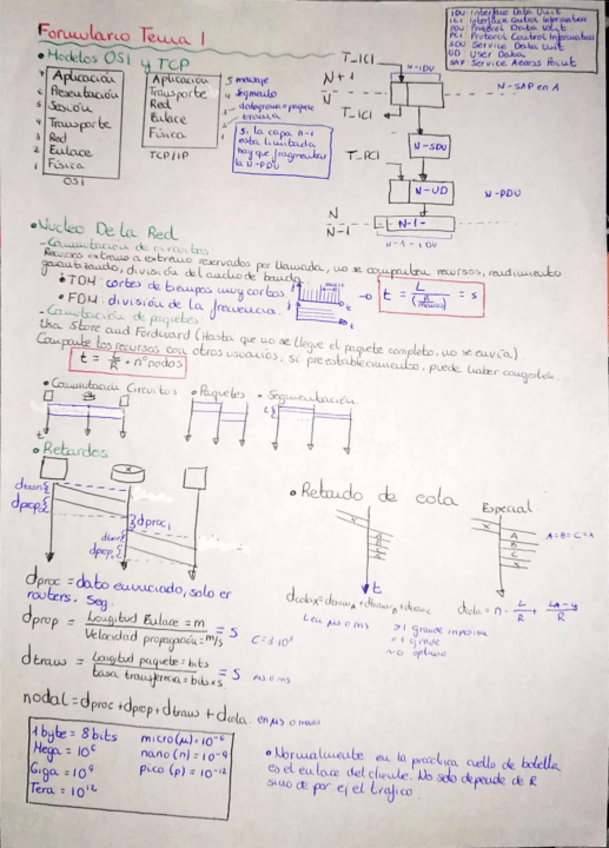 Formulario Tema 1
IDU Interface Data Unit
ICI Interface Control Information
PDU Protocol Data Unit
PCI Protocol Control Information
SDU Service Data Unit
UD: User Data
SAP Service Access Point
• Modelos OSI y TCP
7 Aplicación
6 Presentación
5 Sesión
4 Transporte
3 Red
2 Enlace
1 Física
OSI
Aplicación
Transporte
Red
Enlace
Física
TCP/IP
5 mensaje
4 segmento
3 datagrama o paquete
2 trama
1
Si la capa n-1
esta limitada
hay que fragmentar
la N-PDU
T_ICI
N-IDU
N+1
N
N-SAP en A
T_ICI
N-SDU
T_PCI
N-UD
N-PDU
N
N-1
N-1-
N-1-IDU
• Nucleo De la Red
- Conmutación de circuitos
Recursos extremo a extremo reservados por llamada, no se comparten recursos, rendimiento
garantizando, división del ancho de banda
• TDM: cortes de tiempos muy cortos
• FDM: división de la frecuencia.
t = L / = s
- Conmutación de paquetes:
Usa Store and Fordward (Hasta que no se llegue el paquete completo, no se envía).
Comparte los recursos con otros usuarios, si preestablecimiento, puede haber congestión.
t = L/R · nº nodos
• Conmutación Circuitos • Paquetes • Segmentación
t
• Retardos
dtrans {
dprop {
} dproc
dtran {
dprop {
• Retardo de cola
Especial
X
X
A
B
C
A=B=C=
t
dproc = dato enunciado, solo er
routers. Seg.
dprop = Longitud Enlace = m / Velocidad propagación = m/s = s C=3·10⁸
dtrans = Longitud paquete = bits / tasa transferencia = bits x s = s μs o ms
nodal = dproc + dprop + dtraw + dcola. en μs o
L en μs o ms
>1 grande imposible
dcola = n · L/R +
1 byte = 8 bits
Mega = 10⁶
Giga = 10⁹
Tera = 10¹²
micro (μ) = 10⁻⁶
nano (n) = 10⁻⁹
pico (p) = 10⁻¹²
• Normalmente en la práctica cuello de botella
es el enlace del cliente. No solo depende de R
sino de por ej el trafico